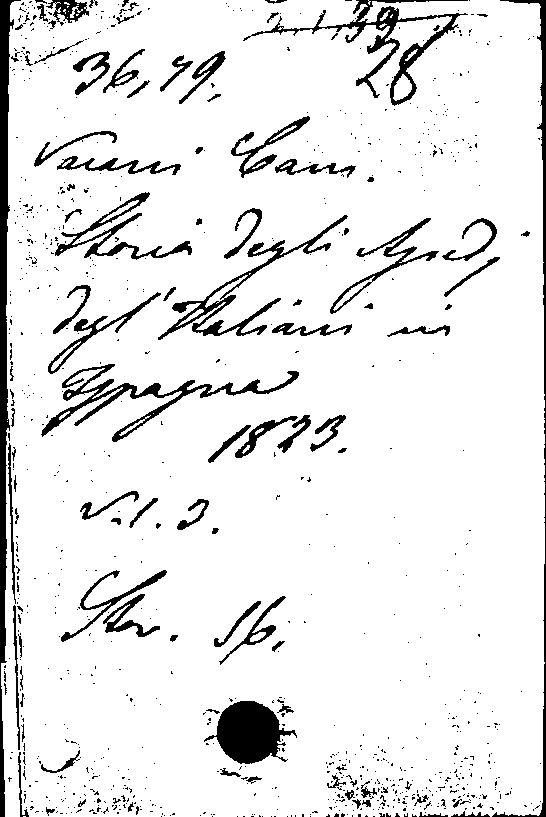 39
36,79. 28
Vacani Cam.
Storia degli Assedj
degl' Italiani in
Ispagna
1823.
Vol. 3.
Stor. 16.